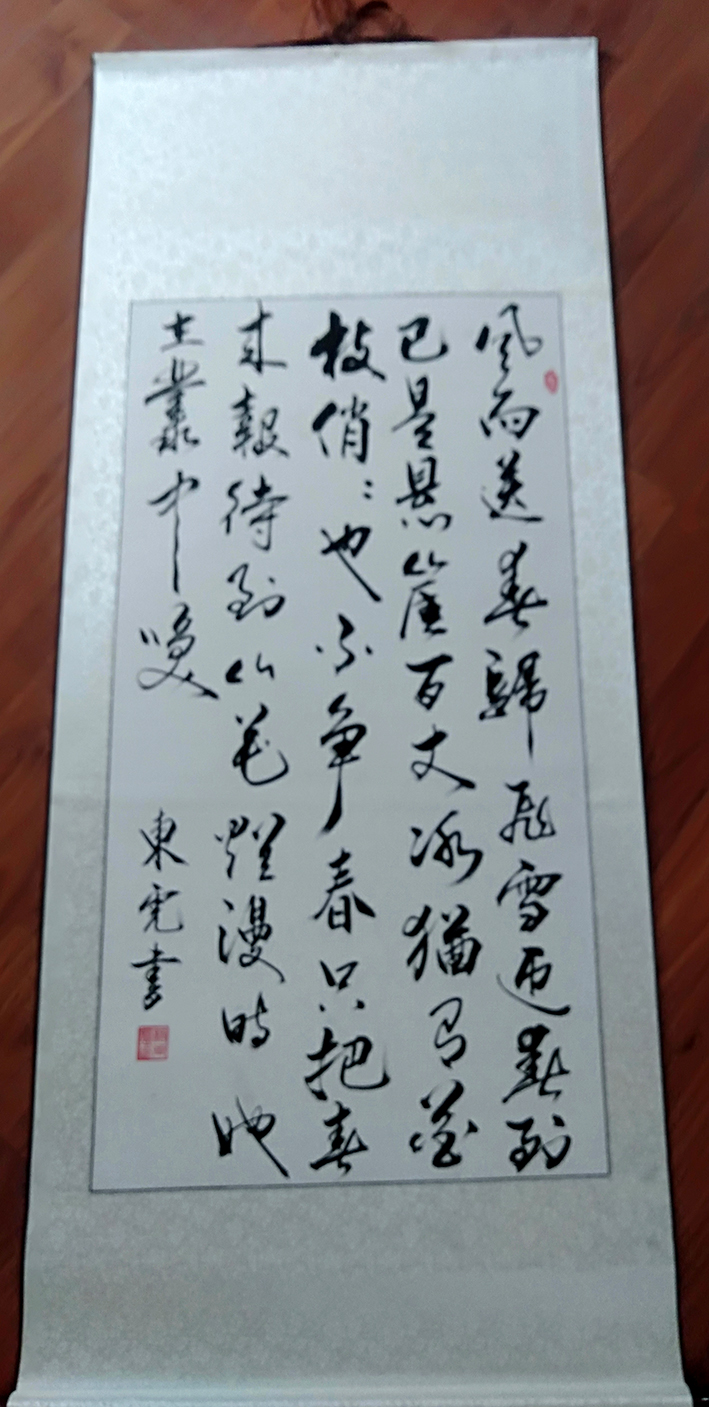 風雨送春歸飛雪迎春到
已是懸崖百丈冰猶有花
枝俏〻也不争春只把春
来報待到山花爛漫時她
在叢中笑
東堯書